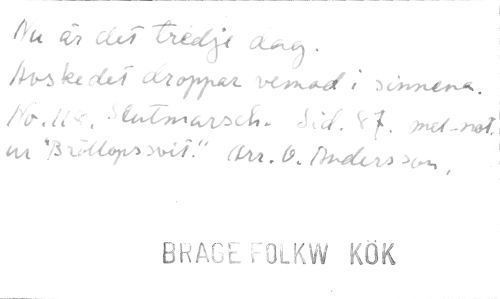 Nu är det tredje dag.
Avskedet droppar vemod i sinnena.
No. 118. Slutmarsch. Sid. 87. mel-not.
ur "Bröllopssvit." Arr. O. Andersson,
BRAGE FOLKW KÖK